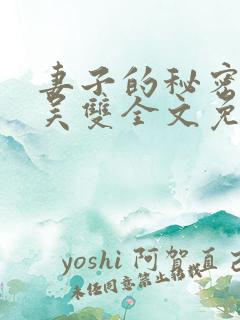 妻子的秘密
吴双全文免
yoshi 阿贺直己
未经同意禁止转载